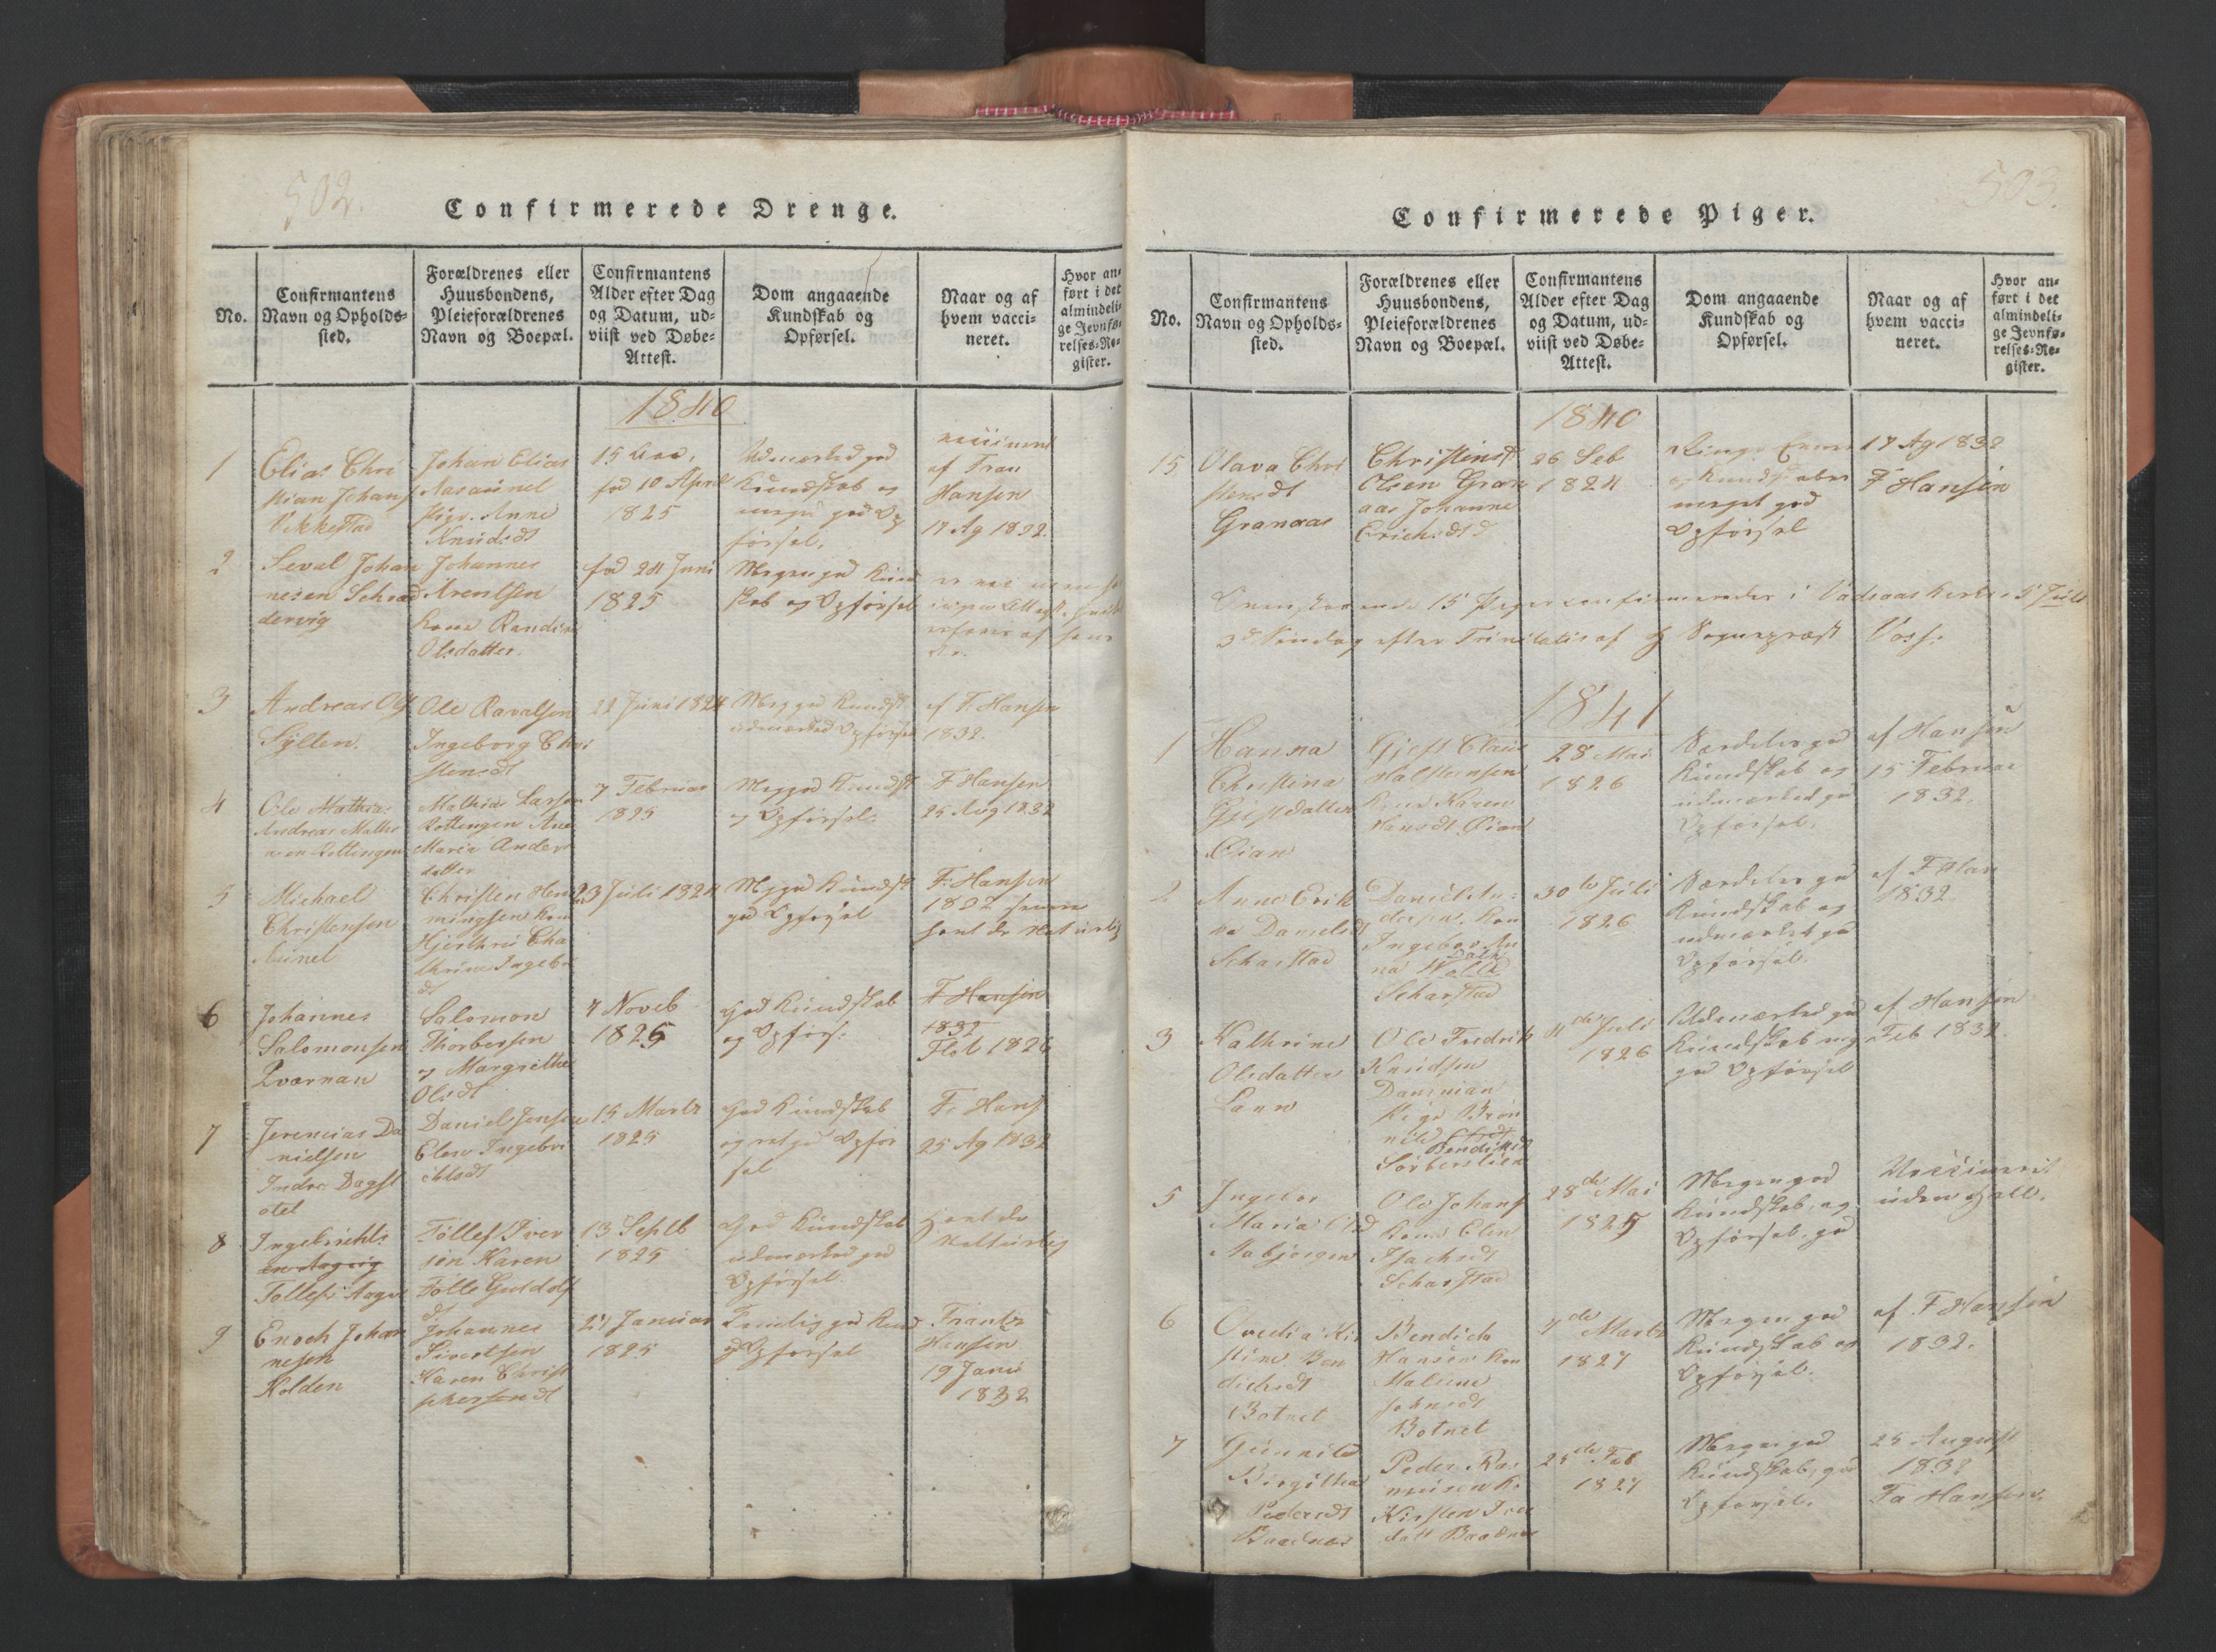 502.
Confirmerede Drenge.
No.
Confirmantens
Navn og Opholds-
sted.
Forældrenes eller
Huusbondens,
Pleieforældrenes
Navn og Boepæl.
Confirmantens
Alder efter Dag
og Datum, ud-
viist ved Døbe-
Attest.
Dom angaaende
Kundskab og
Opførsel.
Naar og af
hvem vacci-
neret.
Hvor an-
ført i det
almindeli-
ge Jevnfø-
relses-Re-
gister.
1840
1
Elias Chri
stian Johans
Vikkestad
Johan Elias
Pige. Anne
Knudsdt
15
fød 10 April
1825
Udmærked god
Kundskab og
meget god Op
førsel.
af Fran
Hansen
17 Ag 1832.
2
Seval Johan
nesen
dervig
Johannes
Arentsen
Kone Randi
Olsdatter.
fød 24 Juni
1825
Megen god Kund
skab og Opførsel
3
Andreas Ols
Sylten.
Ole Ravalsen
Ingeborg Chri
stensdt
22 Juni 1824
Meg god Kundsk
udmærked Opførsel
af F. Hansen
1832.
4
Ole Mathias
Andreas Mathi
Rottingen
Mathias Larsen
Rottingen Ane
Maria Anders
datter
7 Februar
1825
Meg god Kundsk
og Opførsel.
F Hansen
25 Aug 1832
5
Michael
Christensen
Christen Hem
mingsen Kone
Cha
thrine Ingebr
dt
23 Juli 1824
Meg god Kundsk
god Opførsel
F. Hansen
1832
6
Johannes
Salomonsen
Qværnan
Salomon
Thorbersen
og Margrethe
Olsdt
4 Noveb
1825
god Kundskab
og Opførs.
F Hansen
1832
7
Jeremias Da
nielsen
Indre Dagsl
otel
Daniel Jensen
Elen Ingebri
chtsdt
15 Marts
1825
god Kundskab
og ret god Opfør
sel
F. Hans
25 Ag 1832
8
Ingebricht
Tollefs Aagv
Tollef Iver
sen Karen
dt
13 Septb
1825
God Kundskab
udmærked god
Opførsel.
havt de
Naturlig
9
Enoch Johan
nesen
Holden
Johannes
Sivertsen
Karen Christ
phersendt
27 Januar
1825
Temlig god Kund
og Opførsel
Frantz
Hansen
19 Janu
1832
503.
Confirmerede Piger.
No.
Confirmantens
Navn og Opholds-
sted.
Forældrenes eller
Huusbondens,
Pleieforældrenes
Navn og Boepæl.
Confirmantens
Alder efter Dag
og Datum, ud-
viist ved Døbe-
Attest.
Dom angaaende
Kundskab og
Opførsel.
Naar og af
hvem vacci-
neret.
Hvor an-
ført i det
almindeli-
ge Jevnfø-
relses-Re-
gister.
1840
15
Olava Chri
stensdt
Granaas
Olsen Gran
aas Johanne
Erichsdt
26 Feb
1824
meget god
Opførsel
17 Ag 1832
F Hansen
15 Piger confirmerede i Vadsaas Kirke 5 Juli
3d Søndag efter Trinitatis af Hr Sognepræst Voss.
1841
1
Hanna
Christina
Gjestdatter
Oian
Gjest Claus
Halstensen
Kone Karen
Hansdt Oian
28 Mai
1826
Særdeles god
Kundskab og
udmærked god
Opførsel.
af Hansen
15 Februar
1832.
2
Anne Erik
ka Danielsdt
Scharstad
Daniel An-
dersen. Kon
Ingebor An
na
Scharstad
30te Juli
1826
Særdeles god
Kundskab og
udmærket god
Opførsel.
af F Han
1832.
3
Kathrine
Olsdatter
Lann
Ole Fredrik
Knudsen
Pige Brön
nild
Bendiktsdt
4de Juli
1826
Udmærked god
Kundskab meg
god Opførsel
af Hansen
Feb 1832.
5
Ingebor
Maria Olsd
Ole Johans
Kone Elen
Isachsdt
Scharstad
28de Mai
1825
Megen god
Kundskab, og
Opførsel. god
Vaccineret
uden Held.
6
Ovedia Kir
stine Ben
dichsdt
Botnet
Bendich
Hansen Kon
Malene
Johnsdt
Botnet
7de Marts
1827
Megen god
Kundskab og
Opførsel.
af F Hansen
1832.
7
Gunnild
Birgitha
Pedersdt
Baadnes
Peder Ras
musen K.
Kirsten Iver
datt Baadnes
25de Feb
1827
Megen god
Kundskab, god
Opførsel.
25 August
1832
Fa Hansen.